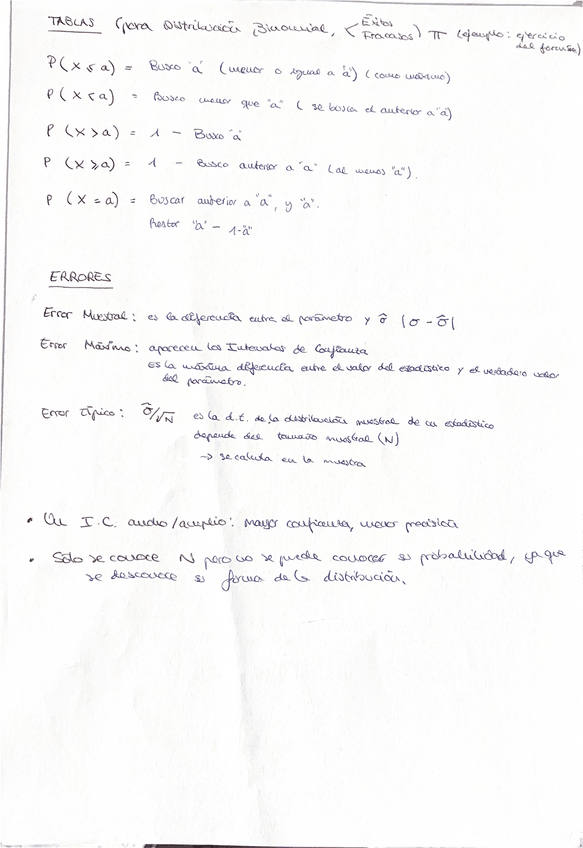 TABLAS (para Distribución Binomial, < Éxitos Fracasos) π (ejemplo: ejercicio del forense)
P(X ≤ a) = Busco "a" (menor o igual a "a") (como máximo)
P(X < a) = Busco menor que "a" (se busca el anterior a "a")
P (X > a) = 1 - Busco "a"
P (X ≥ a) = 1 - Busco anterior a "a" (al menos "a").
P (X = a) = Buscar anterior a "a", y "a".
Restar "a" - 1-"a"
ERRORES
Error Muestral: es la diferencia entre el parámetro y σ̂ |σ - σ̂|
Error Máximo: aparecen los Intervalos de Confianza
Es la máxima diferencia entre el valor del estadístico y el verdadero valor
del parámetro.
Error Típico: σ̂/√N es la d.t. de la distribución muestral de un estadístico
depende del tamaño muestral (N)
→ se calcula en la muestra
• Un I.C. ancho/amplio: mayor confianza, menor precisión
• Sólo se conoce N pero no se puede conocer su probabilidad, ya que
se desconoce su forma de la distribución.